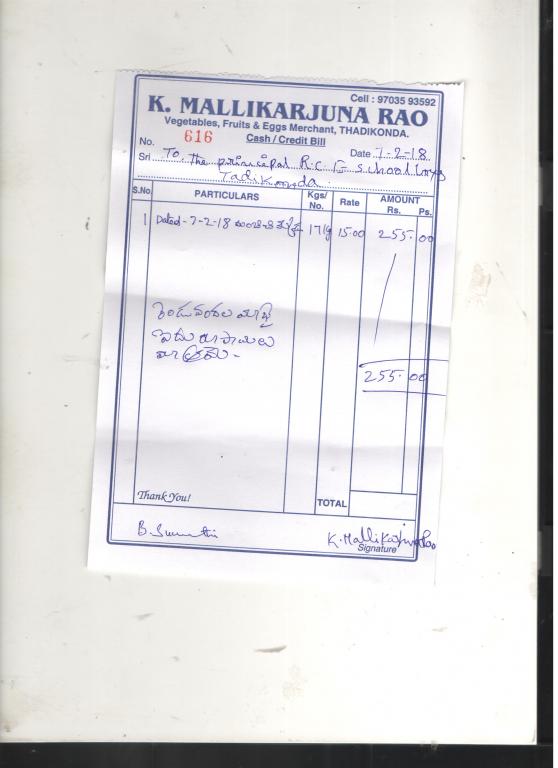 Cell : 97035 93592
K. MALLIKARJUNA RAO
Vegetables, Fruits & Eggs Merchant, THADIKONDA.
No. 616 Cash / Credit Bill
Date 7-2-18
Sri To. The principal R.C. School
Tadikonda.
S.No. PARTICULARS Kgs/ No. Rate AMOUNT Rs. Ps.
1 Dated - 7-2-18 15.00 255.00
రెండువందల యాభై
ఐదు రూపాయలు
255.00
Thank You!
TOTAL
K. Mallikarjuna Rao
Signature